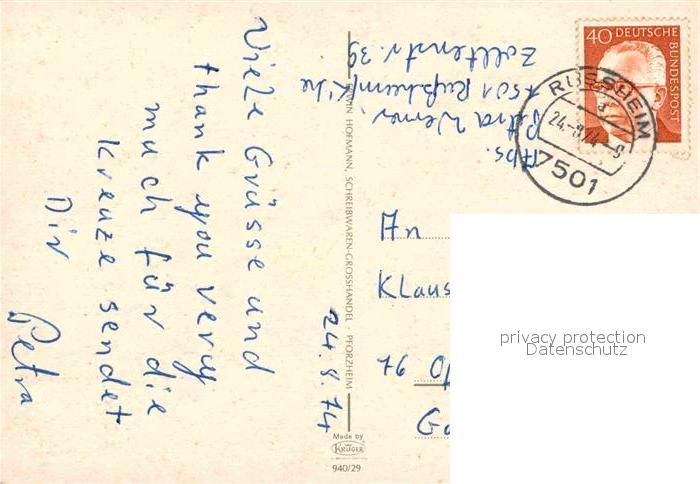 Viele Grüsse und
thank you very
much für die
Kreuze sendet
Dir
Petra
24.8.74
Abs.
Petra Werner,
7501 Rußheim/Khe
Zolltenstr. 39
HOFMANN, SCHREIBWAREN-GROSSHANDEL · PFORZHEIM
Made by
KRÜGER
940/29
40 DEUTSCHE
BUNDESPOST
RUSSHEIM
24.-8.74-9
7501
An
Klaus
76
privacy protection
Datenschutz